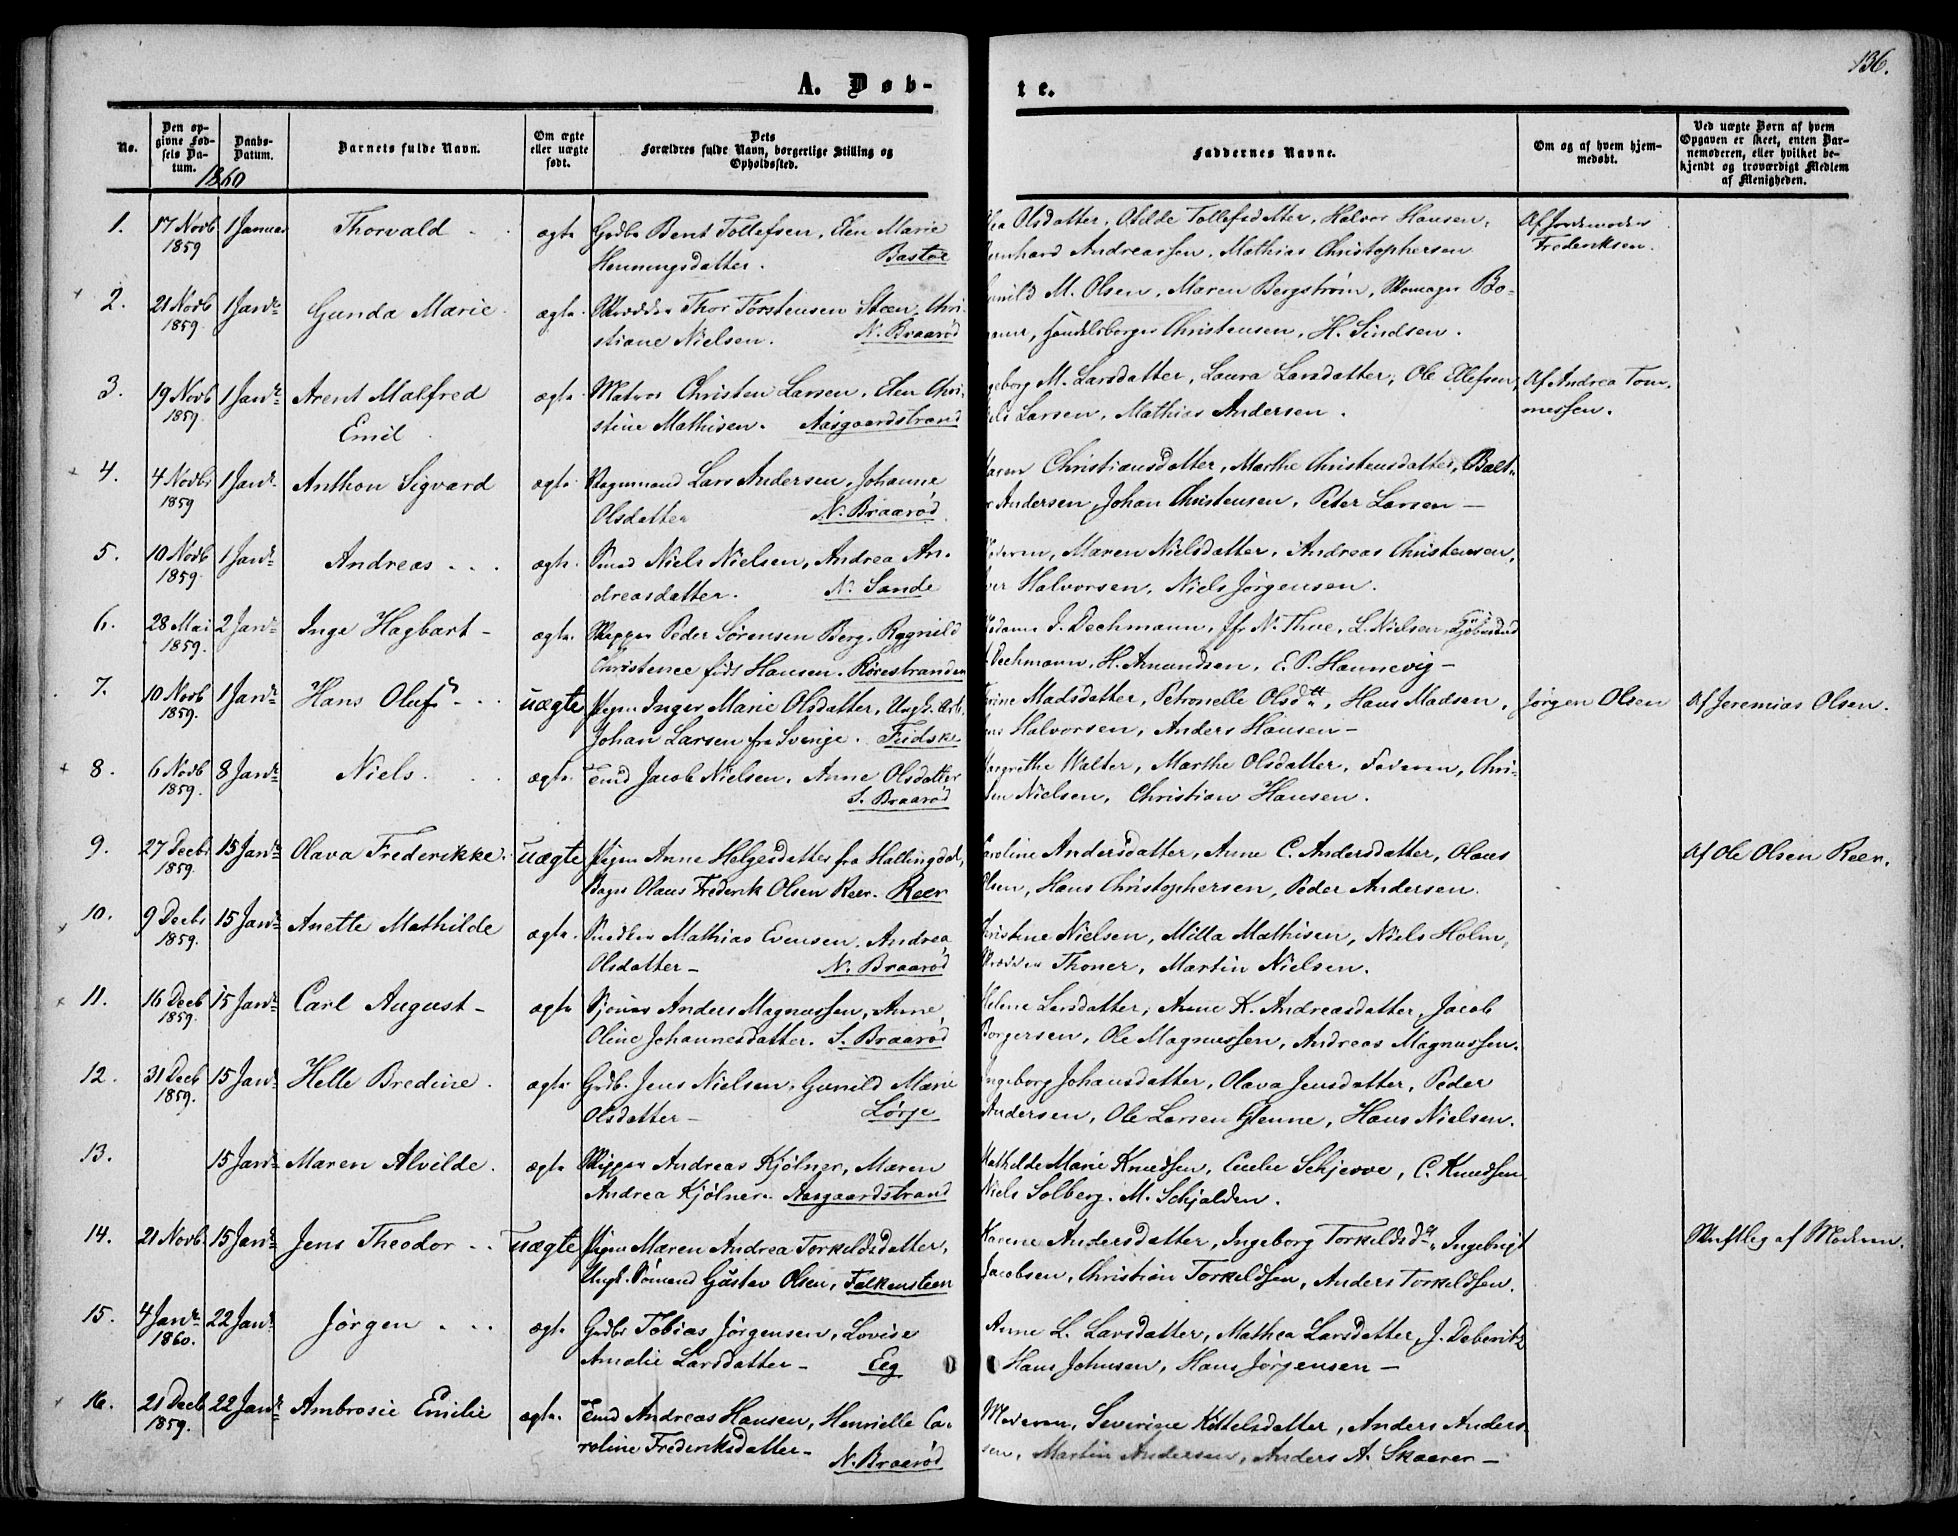 136.
A. Døb-
te.
No.
Den op-
givne Fød-
sels Da-
tum.
Daabs-
Datum.
Barnets fulde Navn.
Om ægte
eller uægte
født.
Dets
Forældres fulde Navn, borgerlige Stilling og
Opholdssted.
Faddernes Navne.
Om og af hvem hjem-
medøbt.
Ved uægte Børn af hvem
Opgaven er skeet, enten Bar-
nemoderen, eller hvilket be-
kjendt og troværdigt Medlem
af Menigheden.
1860
1. 17 Novb 1 Januar Thorvald ægte Grdbr Bent Tollefsen, Elen Marie Olsdatter, Otilde Tollefsdatter, Halvor Hansen, Af Jordemoder
1859 Henningsdatter. Bastøe Andreassen, Mathias Christophersen Frederiksen.
2. 21 Novb 1 Janr Gunda Marie ægte Skrædder Thor Torstensen Steen, Chri- M. Olsen, Maren Bergstrøm, Skomager Bo-
1859 stiane Nielsen. N. Braarød Handelsborger Christensen, H. Sindsen.
3. 19 Novb 1 Janr Arent Malfred ægte Matros Christen Larsen, Elen Chri- M. Larsdatter, Laura Larsdatter, Ole Ellefsen, Af Andrea Tom-
1859. Emil stine Mathisen. Aasgaardstrand Larsen, Mathias Andersen. messen.
4. 4 Novbr 1 Janr Anthon Sigvard ægte Lars Andersen, Johanne Christiansdatter, Marthe Christensdatter, Balt-
1859 Olsdatter N. Braarød Andersen, Johan Christensen, Peter Larsen —
5. 10 Novb 1 Janr Andreas ægte Smed Niels Nielsen, Andrea An- Maren Nielsdatter, Andreas Christensen,
1859. dreasdatter. N. Sande Halvorsen, Niels Jørgensen.
6. 28 Mai 2 Janr Inge Hagbart — ægte Skipper Peder Sørensen Berg, Ragnild J. Dechmann, Jfr N. Thue, L. Nielsen,
1859. Christence født Hansen. Rørestranden Dechmann, H. Amundsen, E. P. Hannevig —
7. 10 Novb 1 Janr Hans Oluf uægte Pigen Inger Marie Olsdatter, Ungk. Arb. Madsdatter, Petronelle Olsdtr, Hans Madsen, Jørgen Olsen Af Jeremias Olsen.
1859. Johan Larsen fra Sverige. Fudske Halvorsen, Anders Hansen —
8. 6 Novb 8 Janr Niels ægte Jacob Nielsen, Anne Olsdatter Walter, Marthe Olsdatter, Faderen, Chri-
1859. S. Braarød Nielsen, Christian Hansen.
9. 27 Decbr 15 Janr Olava Frederikke uægte Pigen Anne Helgesdatter fra Hallingdal, Andersdatter, Anne C. Andersdatter, Olaus Af Ole Olsen Reer.
1859. Olaus Frederik Olsen Reer. Reer Olsen, Hans Christophersen, Peder Andersen.
10. 9 Decbr 15 Janr Anette Mathilde ægte Snedker Mathias Evensen, Andrea Nielsen, Milla Mathisen, Niels Holm,
1859. Olsdatter — N. Braarød Thoner, Martin Nielsen.
11. 16 Decb 15 Janr Carl August — ægte Anders Magnussen, Anne Helene Larsdatter, Anne K. Andreasdatter, Jacob
1859. Oline Johannesdatter. S. Braarød Borgersen, Ole Magnussen, Andreas Magnussen.
12. 31 Decb 15 Janr Helle Bredine ægte Grdb. Jens Nielsen, Gunild Marie Ingeborg Johansdatter, Olava Jensdatter, Peder
1859. Olsdatter — Lørje Andersen, Ole Larsen Glenne, Hans Nielsen.
13. 15 Janr Maren Alvilde ægte Skipper Andreas Kjølner, Maren Mathilde Marie Knudsen, Schjerve, C. Knudsen
Andrea Kjølner. Aasgaardstrand Niels Solberg. M. Schjalden.
14. 21 Novb. 15 Janr Jens Theodor uægte Pigen Maren Andrea Torkildsdatter, Karene Andersdatter, Ingeborg Torkildsdtr, Ingebrigt Skriftlig af Moderen.
Ungk. Sømand Gustav Olsen, Falkensteen Jacobsen, Christian Torkildsen, Anders Torkildsen.
15. 4 Janr 22 Janr Jørgen ægte Grdbr Tobias Jørgensen, Lovise Anne L. Larsdatter, Mathea Larsdatter, J. Deberitz
1860. Amalie Larsdatter — Eeg Hans Johnsen, Hans Jørgensen —
16. 21 Decb 22 Janr Ambrosie Emilie ægte Andreas Hansen, Henrielle Ca- Moderen, Severine Kittelsdatter, Anders Anders-
1859. roline Frederiksdatter — N. Braarød sen, Martin Andersen, Anders A. Skaerer —